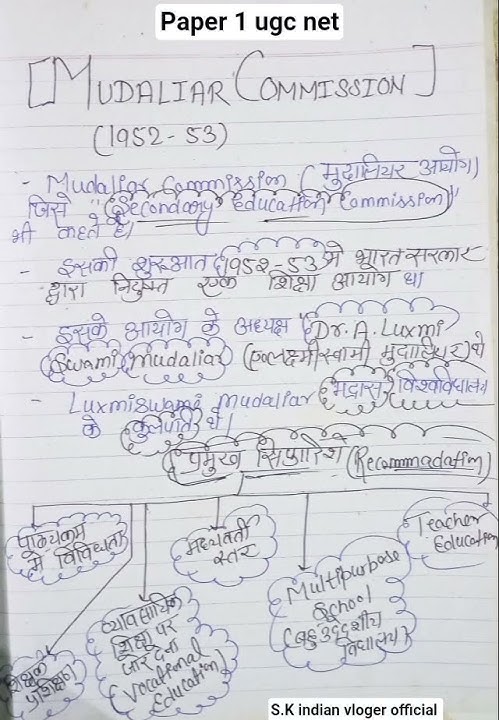 Paper 1 ugc net
[MUDALIAR COMMISSION]
(1952-53)
- Mudaliar Commission (मुदालियर आयोग)
जिसे "Secondary Education Commission"
भी कहते है।
- इसकी शुरुआत 1952-53 मे भारत सरकार
द्वारा नियुक्त एक शिक्षा आयोग था
- इसके आयोग के अध्यक्ष "Dr. A. Luxmi
Swami Mudaliar (लक्ष्मीस्वामी मुदालियर) थे
- Luxmiswami Mudaliar मद्रास विश्वविद्यालय
के कुलपति थे।
प्रमुख सिफारिशे (Recommadation)
पाठ्यक्रम
मे विविधता
मध्यवर्ती
स्तर
Teacher
Education
व्यावसायिक
शिक्षा पर
जोर देना
(Vocational
Education)
Multipurpose
School
(बहुउद्देशीय
विद्यालय)
शिक्षक
प्रशिक्षण
S.K indian vloger official